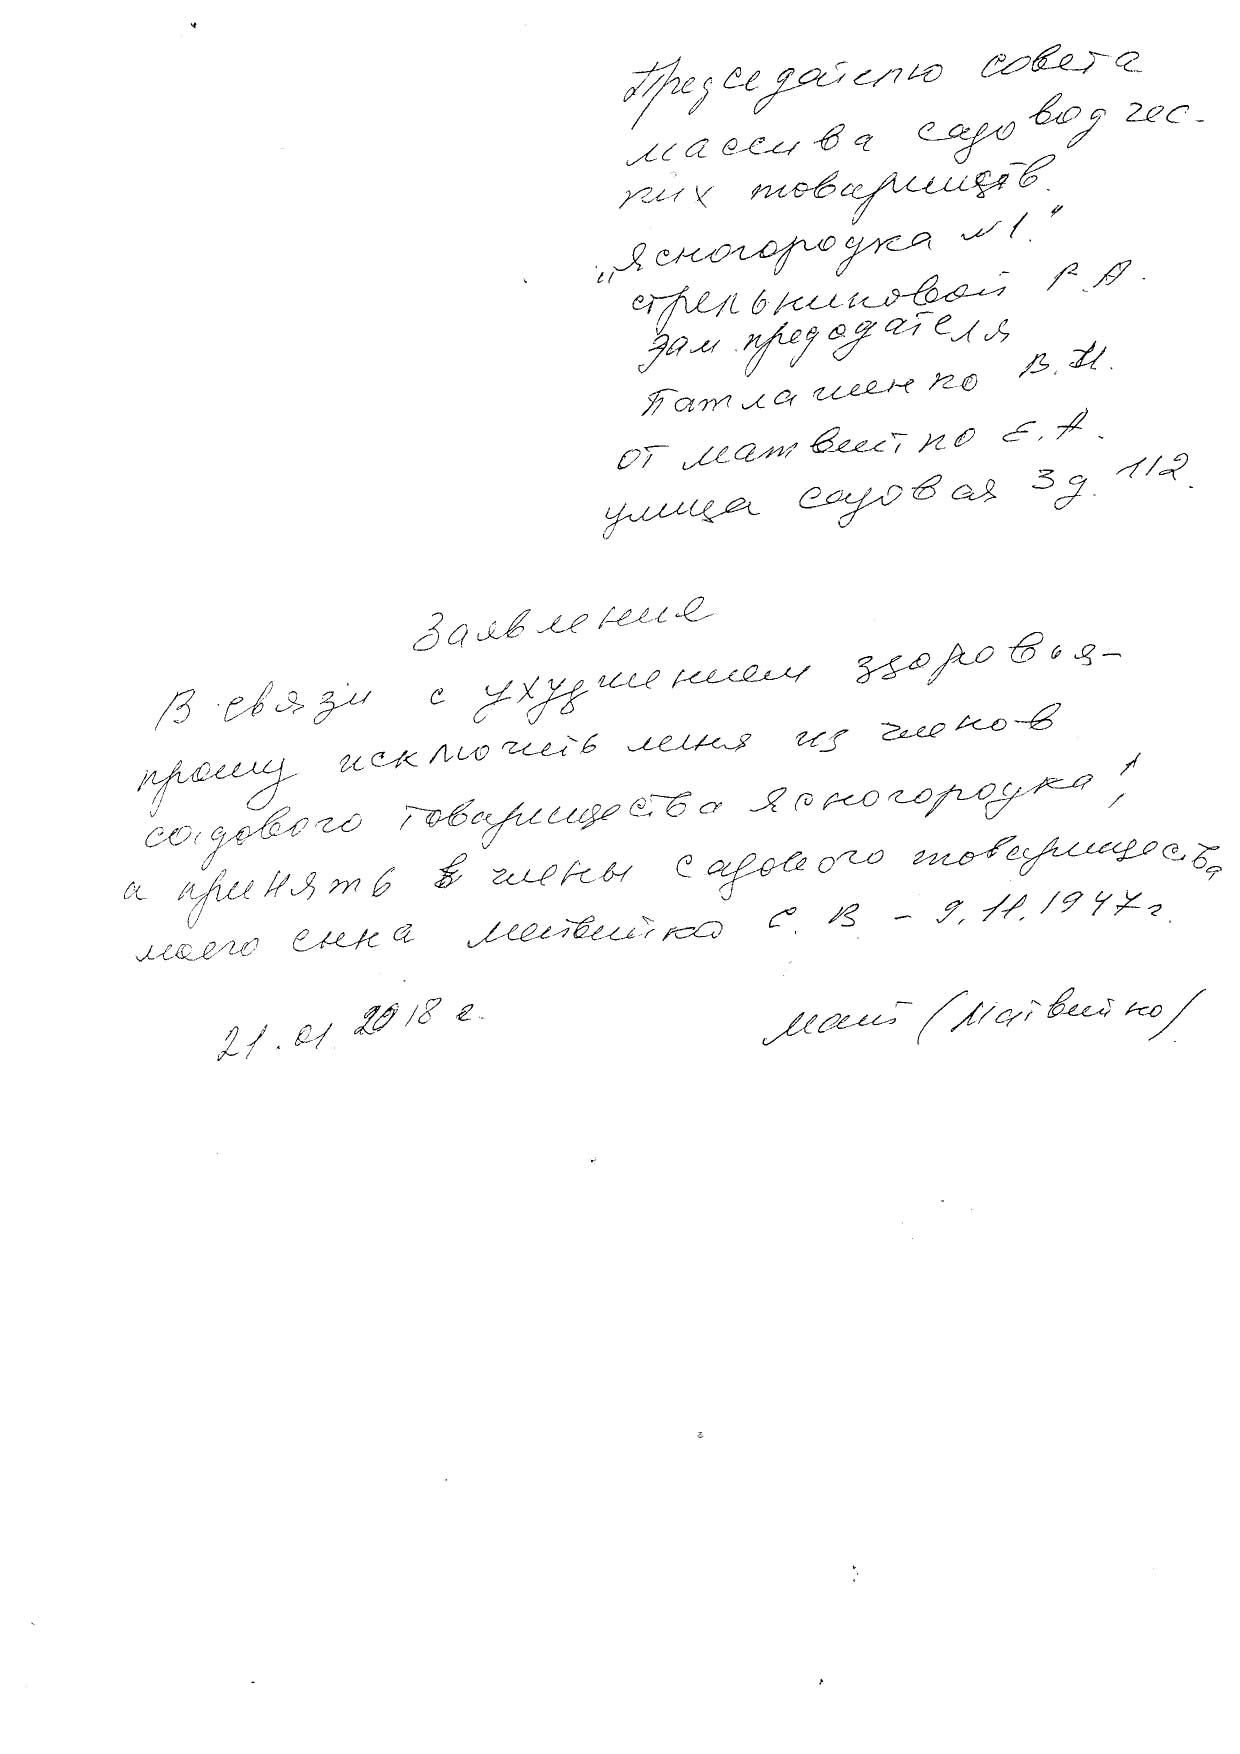 Председателю совета
массива садоводчес-
ких товариществ
„Ясногородка №1"
Стрельниковой Р.А.
зам. председателя
Патлашенко В.И.
от Матвейко Е.А.
улица садовая 3 д. 112.
Заявление
В связи с ухудшением здоровья -
прошу исключить меня из членов
садового товарищества Ясногородка",
а принять в члены садового товарищества
моего сына Матвейко С. В - 9.11.1947г.
21.01.2018 г. Мат (Матвейко)